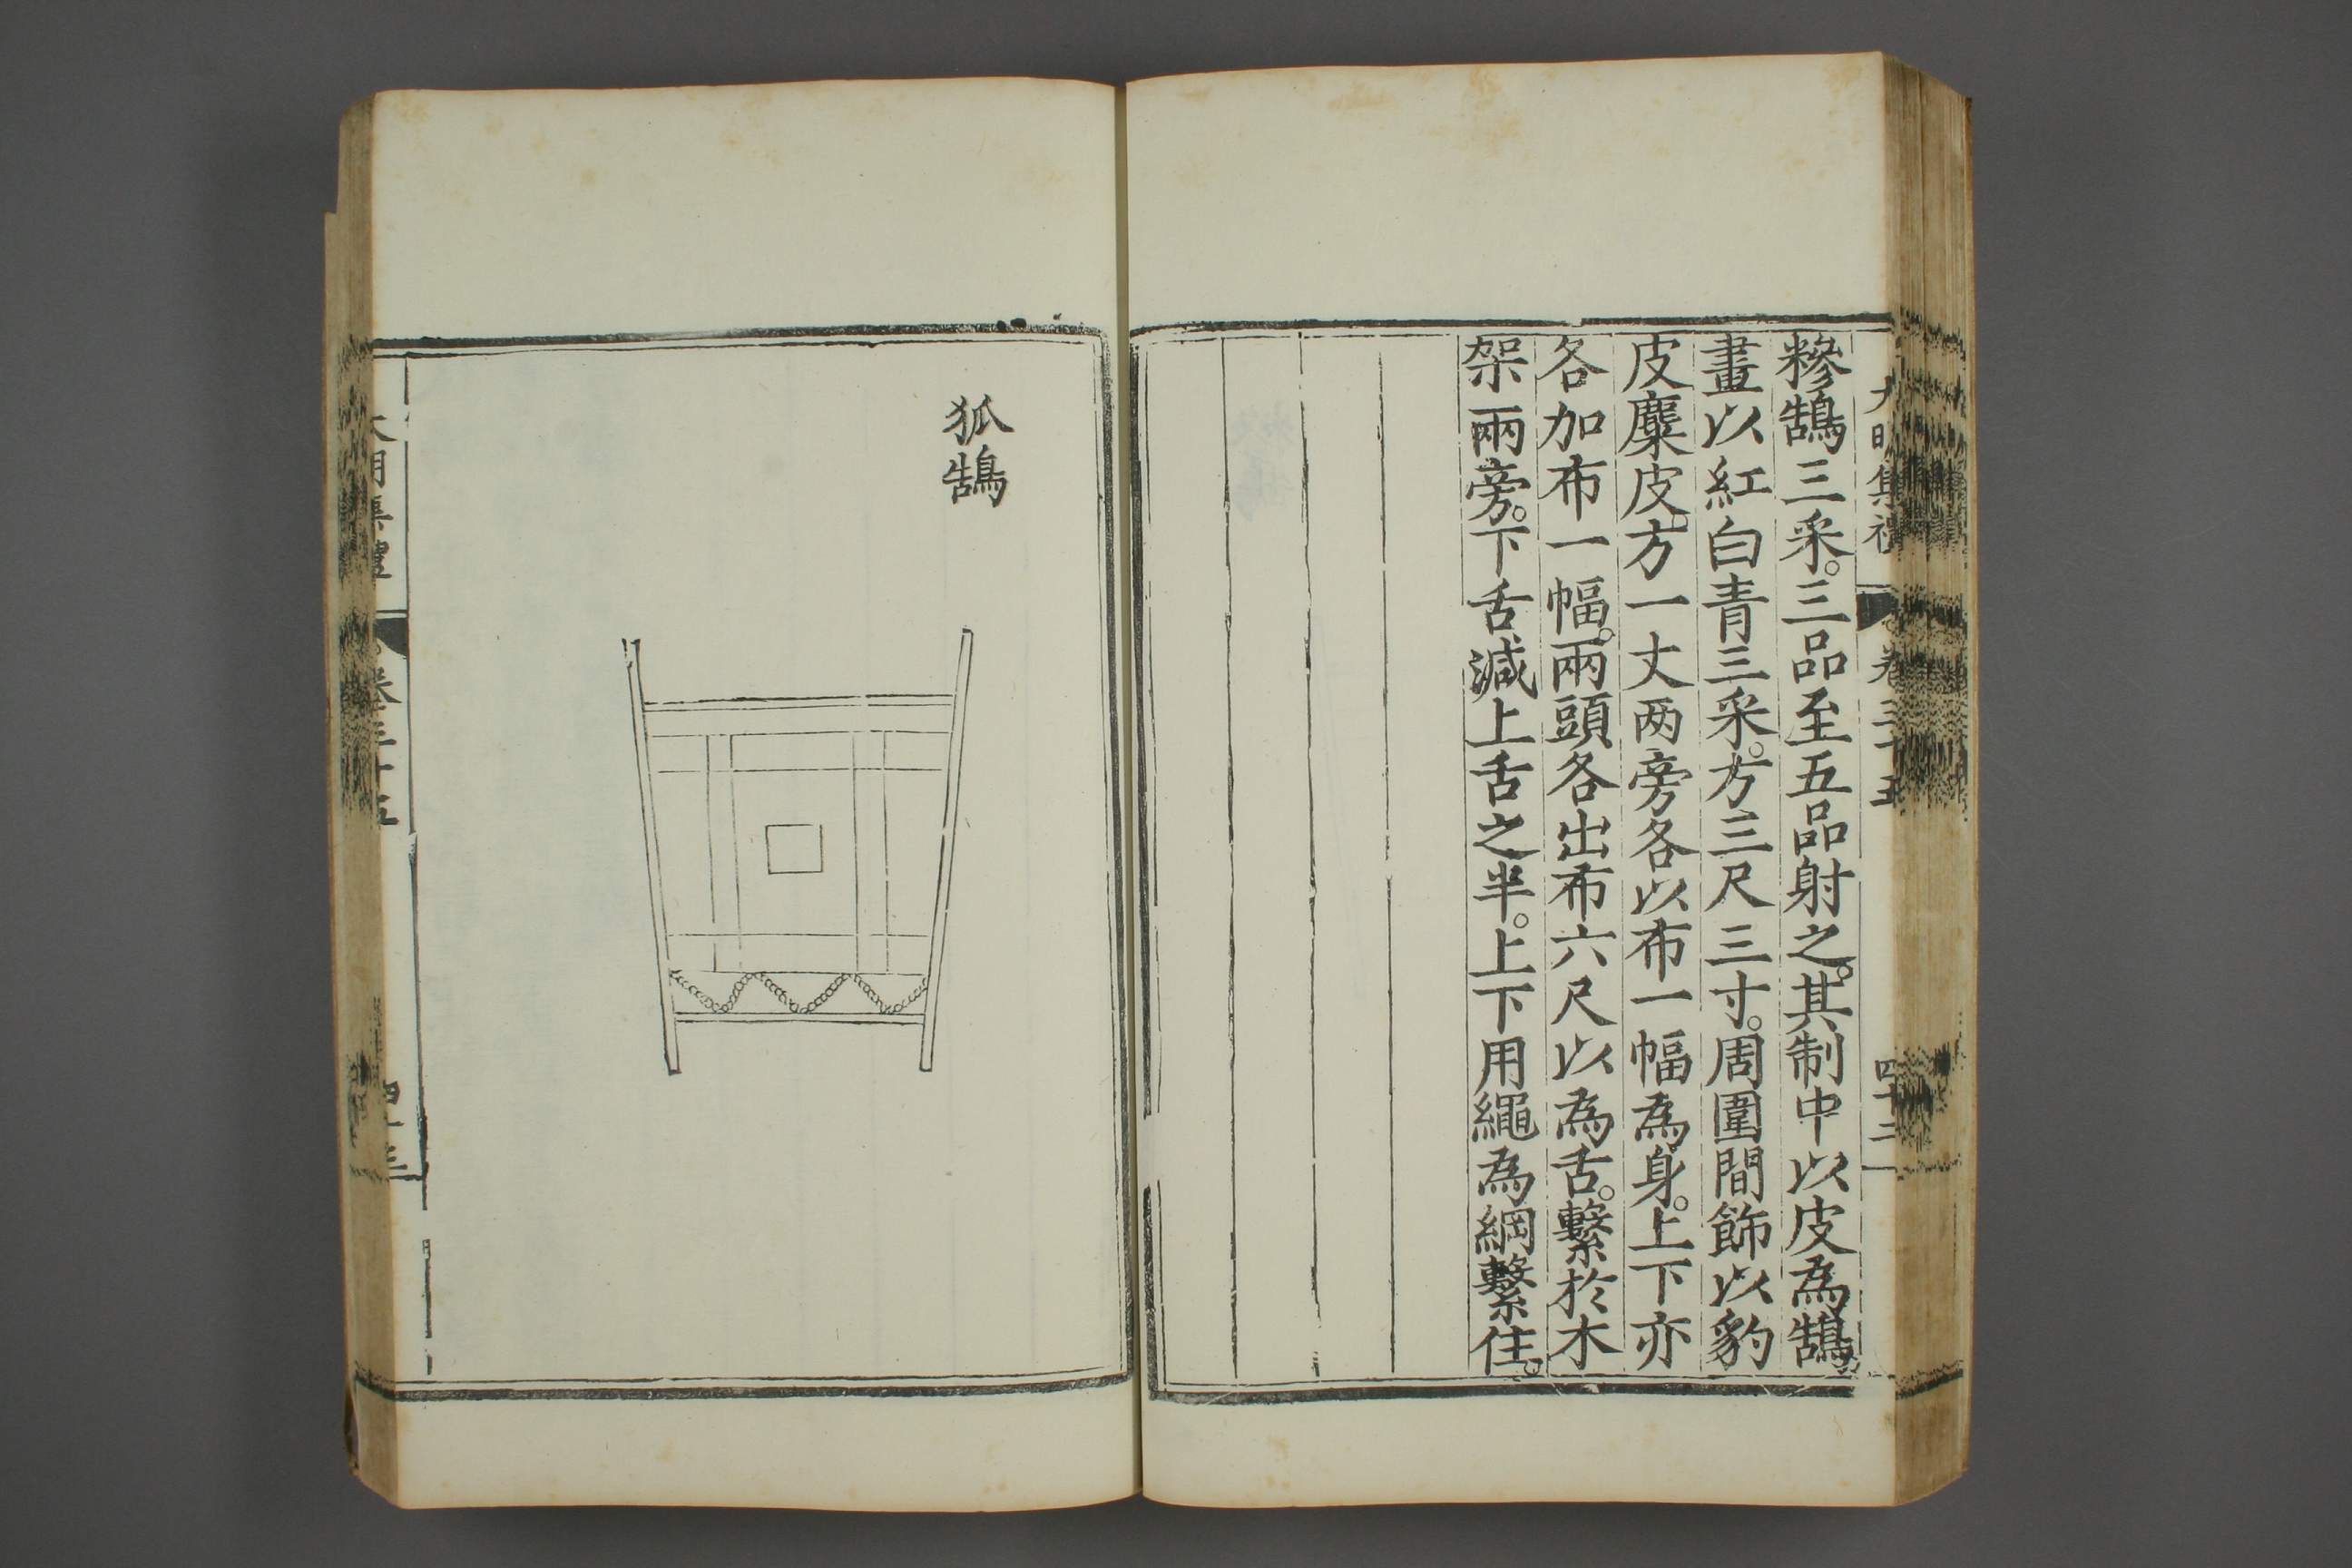 大明集禮 卷三十五 四十三
糝鵠三采。三品至五品射之。其制中以皮為鵠
畫以紅白青三采。方三尺三寸。周圍間飾以豹
皮麋皮。方一丈两旁各以布一幅為身。上下亦
各加布一幅。兩頭各出布六尺以為舌。繫於木
架兩旁。下舌減上舌之半。上下用繩為綱繫住。
狐鵠
大明集禮 卷三十五